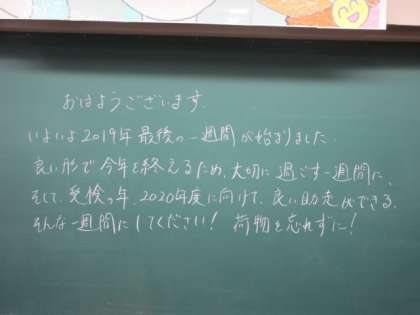 おはようございます.
いよいよ2019年最後の一週間が始まりました.
良い形で今年を終えるため、大切に過ごす一週間に、
そして、受検の年、2020年度に向けて、良い助走ができる、
そんな一週間にしてください! 荷物を忘れずに!